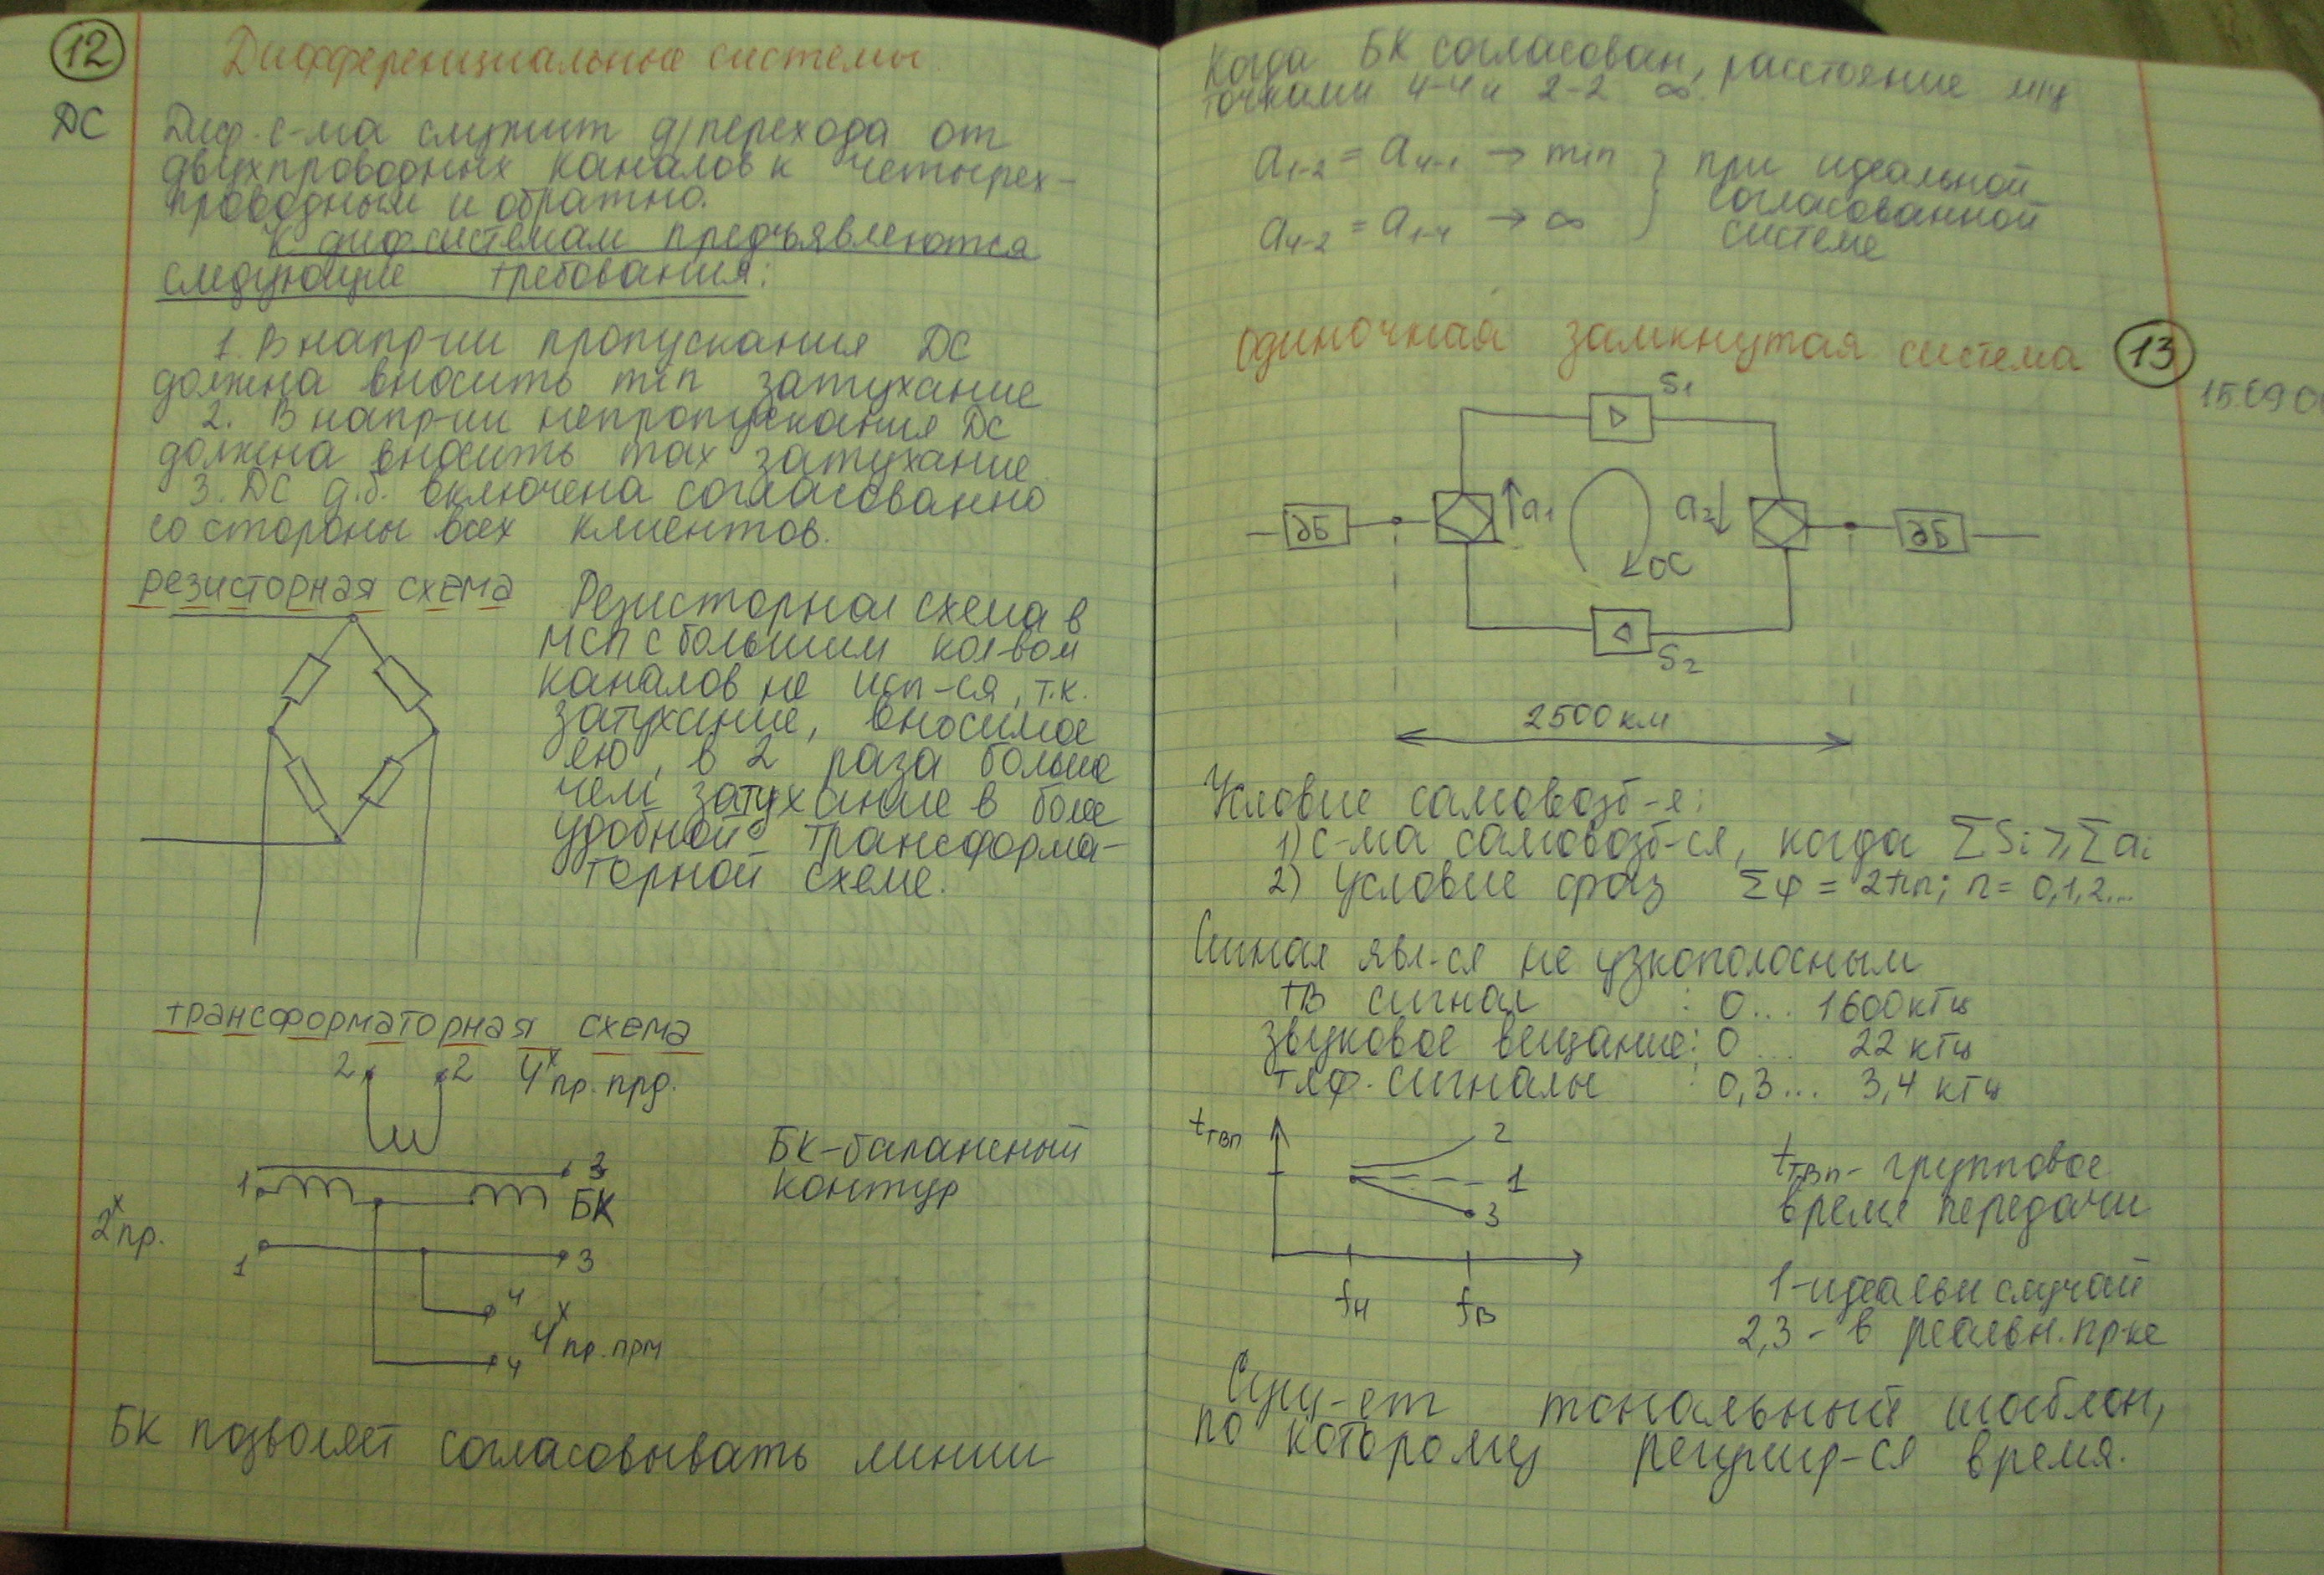 12
Дифференциальные системы
ДС
Диф. с-ма служит д/перехода от
двухпроводных каналов к четырех-
проводным и обратно.
К диф системам предъявляются
следующие требования:
1. В напр-ии пропускания ДС
должна вносить min затухание
2. В напр-ии непропускания ДС
должна вносить max затухание
3. ДС д.б. включена согласованно
со стороны всех клиентов.
резисторная схема
Резисторная схема в
МСП с большим кол-вом
каналов не исп-ся, т.к.
затухание, вносимое
ею, в 2 раза больше
чем затухание в более
удобной трансформа-
торной схеме.
трансформаторная схема
2 2 4х пр. прд.
1 3
БК
БК-балансный
контур
2х пр.
1 3
4
4х пр. прм
4
БК позволяет согласовывать линии
Когда БК согласован, расстояние м/у
точками 4-4 и 2-2 ∞.
a1-2 = a4-1 → min
a4-2 = a1-4 → ∞
} при идеальной
согласованной
системе
Одиночная замкнутая система
13
S1
дБ a1 a2 дБ
ОС
S2
2500 км
Условие самовозб-е:
1) с-ма самовозб-ся, когда ΣSi ≥ Σai
2) условие фаз Σφ = 2πn; n = 0,1,2...
Сигнал явл-ся не узкополосным
ТВ сигнал : 0... 1600 кГц
звуковое вещание: 0... 22 кГц
тлф. сигналы : 0,3... 3,4 кГц
tгвп
2
1
3
fн fв
tгвп - групповое
время передачи
1-идеальн случай
2,3 - в реальн. пр-ке
Сущ-ет тональный шаблон,
по которому время.